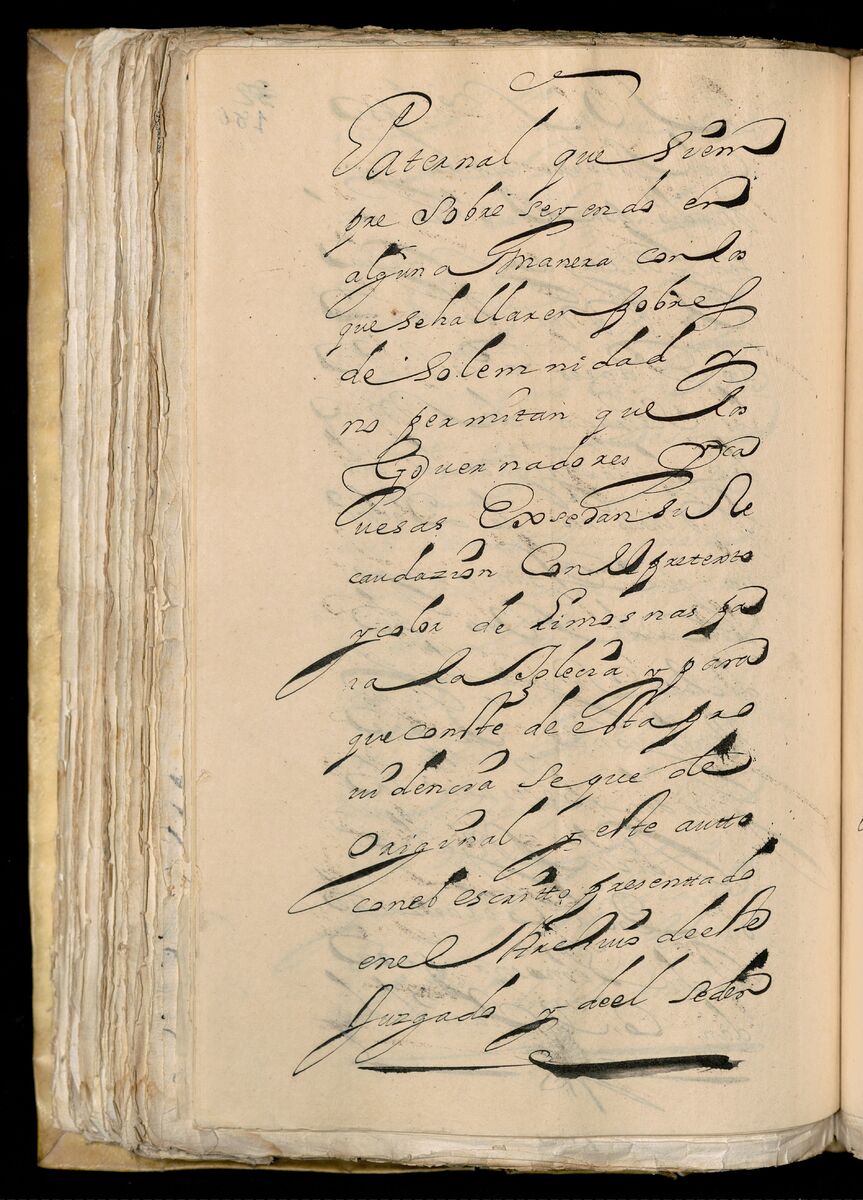 Paternal que siem
pre sobre seyendo en
alguna manera con los
que se hallaren pobres
de solemnidad y
no permitan que los
Governadores y ca
uesas Exsedan su Re
caudazion Con el pretexto
y color de Limosnas pa
ra la Iglecia y para
que conste de esta pro
uidencia se que de
original y este autto
con el escritto presenttado
en el Archiuo de este
Juzgado y de el se den